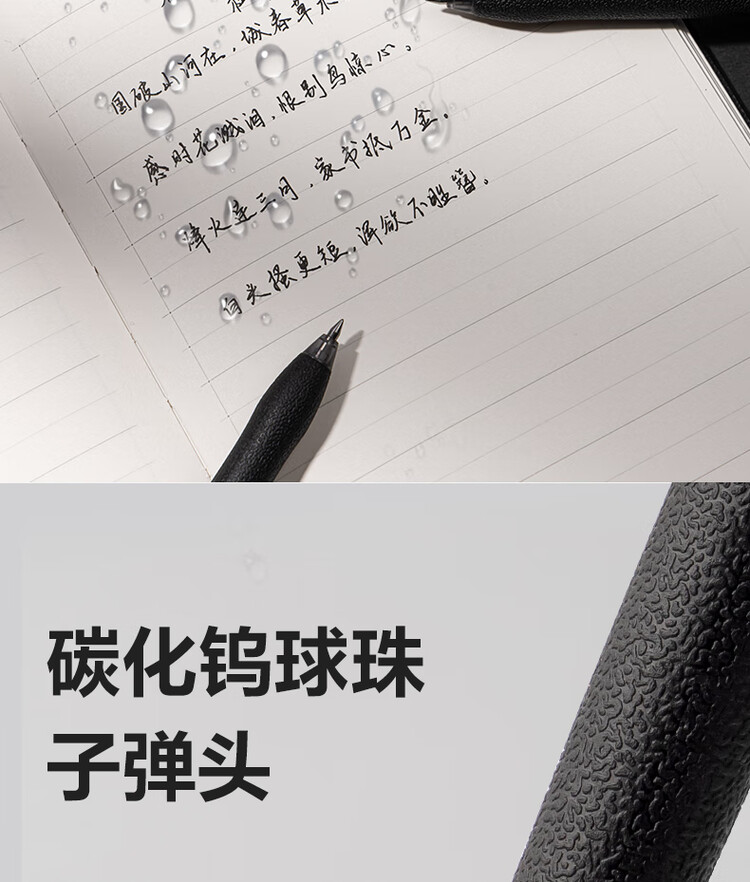 国破山河在，城春草木
感时花溅泪，恨别鸟惊心。
烽火连三月，家书抵万金。
白头搔更短，浑欲不胜簪。
碳化钨球珠
子弹头